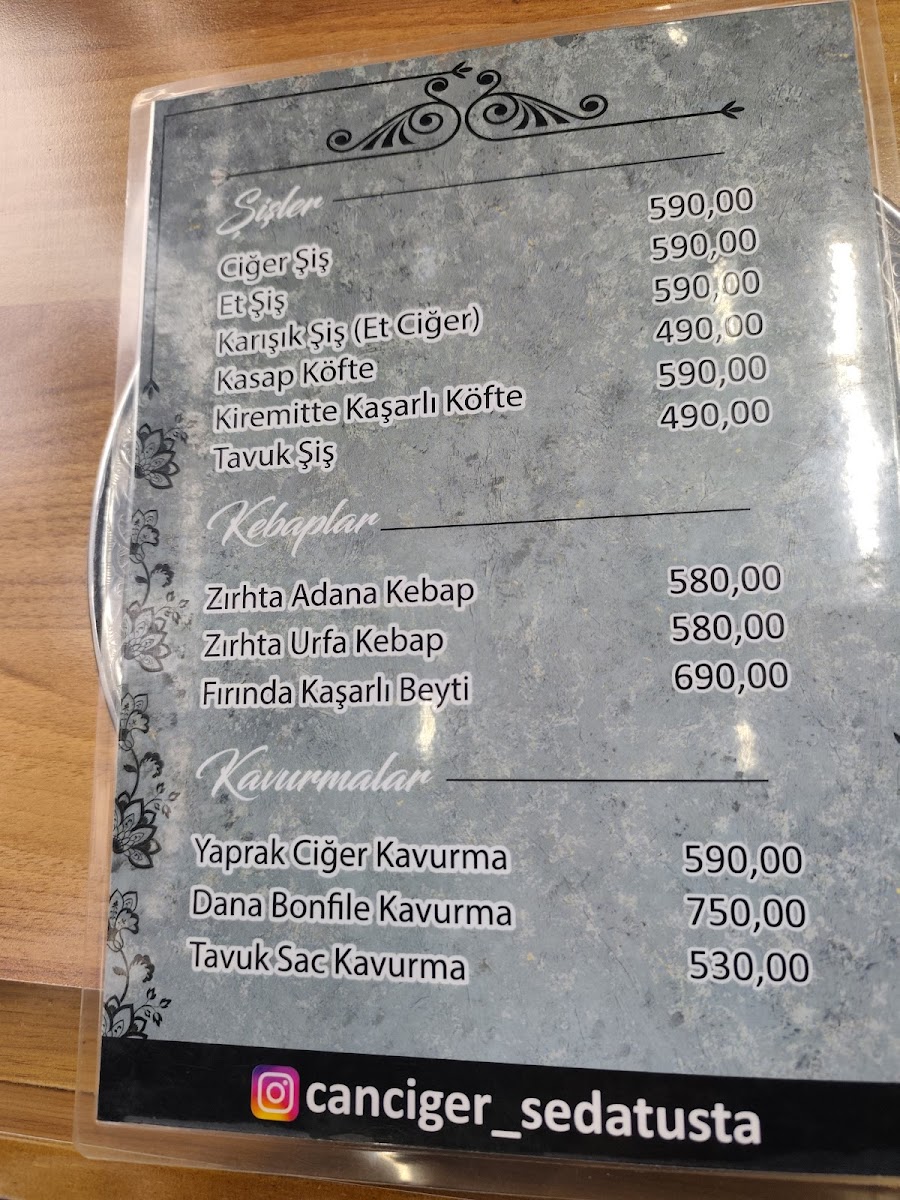 Şişler
Ciğer Şiş 590,00
Et Şiş 590,00
Karışık Şiş (Et Ciğer) 590,00
Kasap Köfte 490,00
Kiremitte Kaşarlı Köfte 590,00
Tavuk Şiş 490,00
Kebaplar
Zırhta Adana Kebap 580,00
Zırhta Urfa Kebap 580,00
Fırında Kaşarlı Beyti 690,00
Kavurmalar
Yaprak Ciğer Kavurma 590,00
Dana Bonfile Kavurma 750,00
Tavuk Sac Kavurma 530,00
canciger_sedatusta